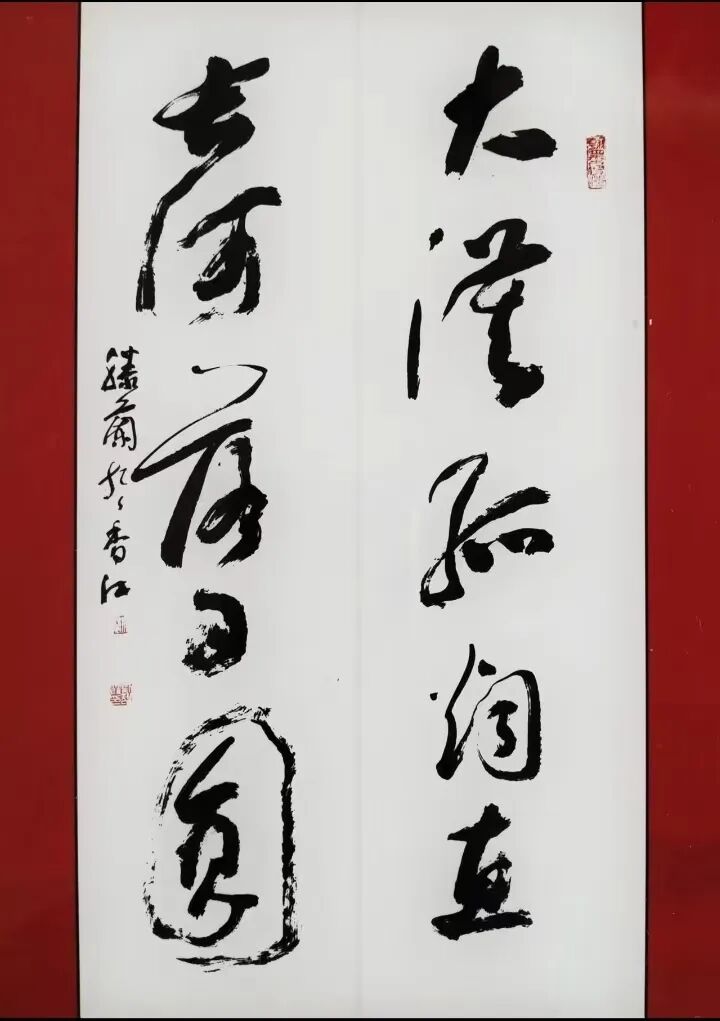 大漠孤烟直
长河落日圆
于香江